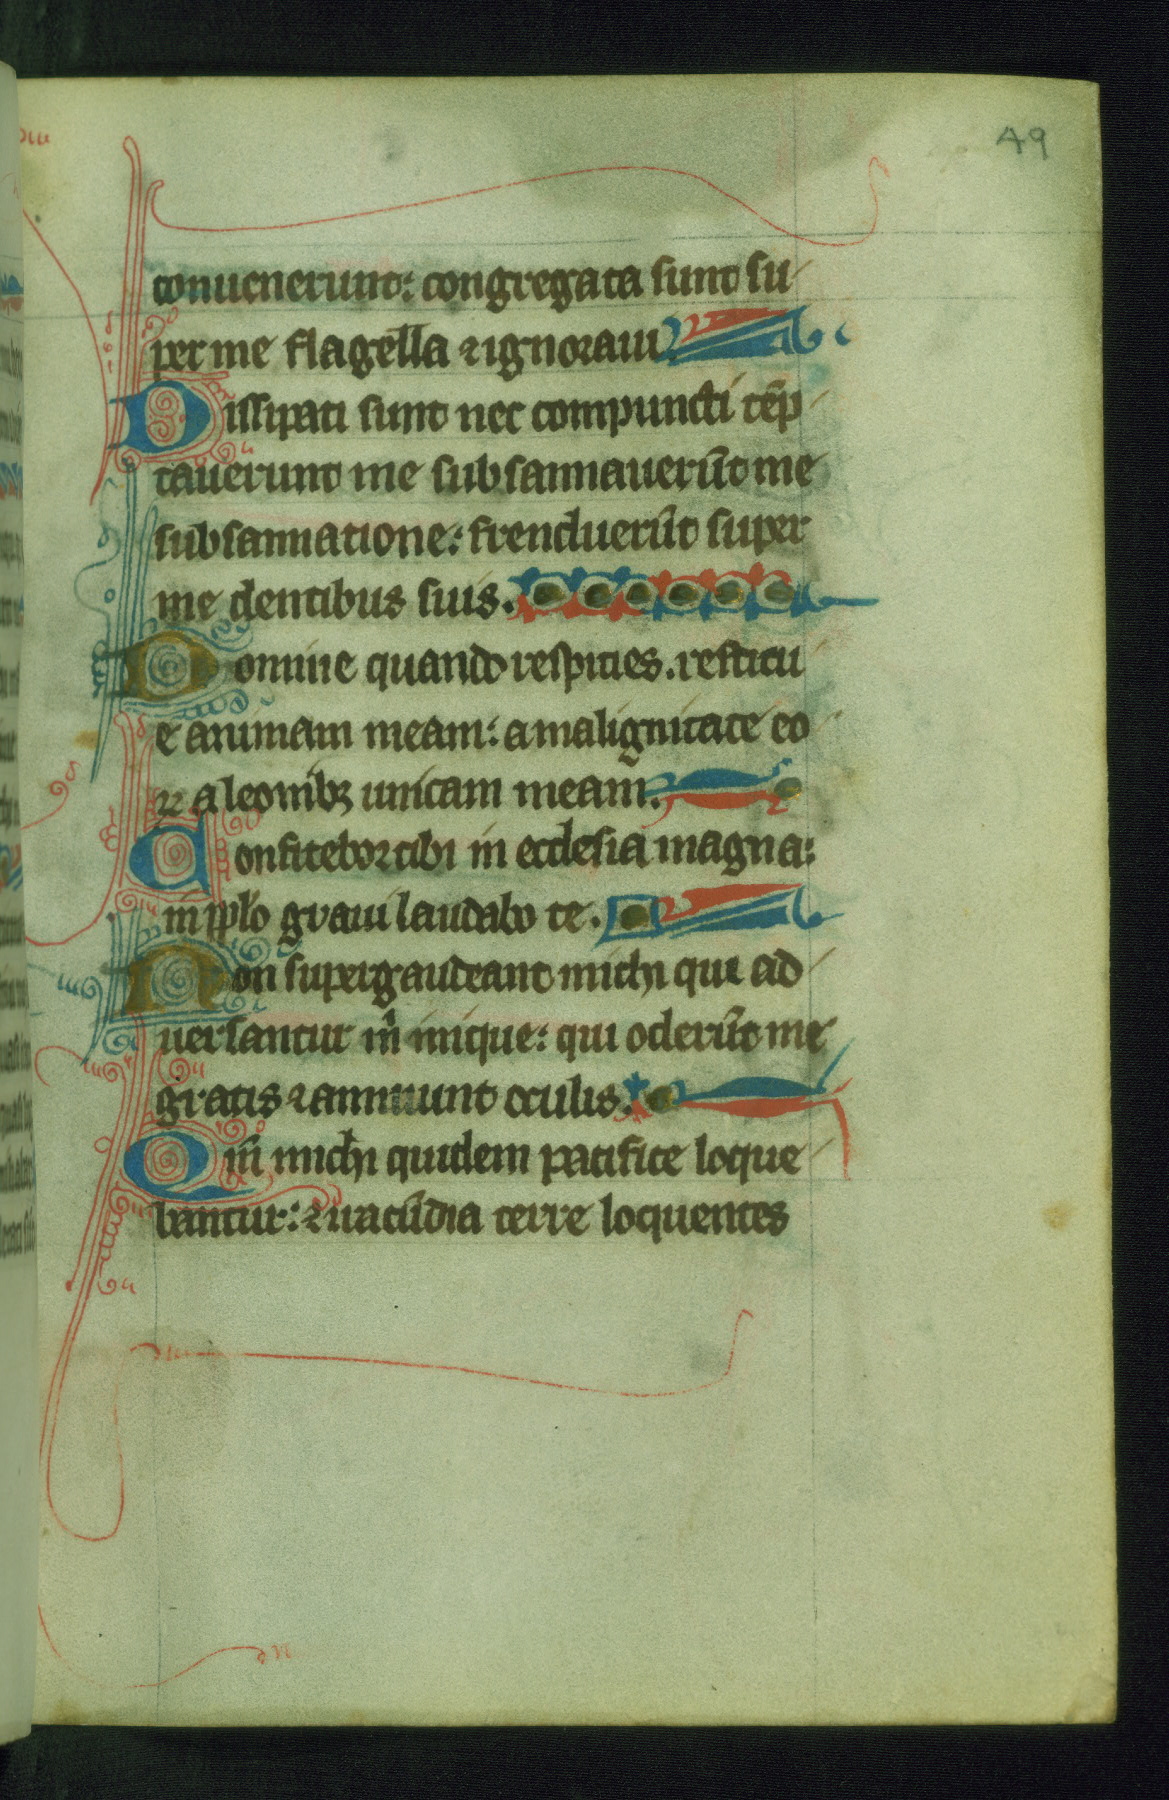 49
conuenerunt: congregata sunt su
per me flagella ⁊ ignoraui.
Dissipati sunt nec compuncti tēp
tauerunt me subsannauerūt me
subsannatione: frenduerūt super
me dentibus suis.
Domine quando respicies. restitu
e animam meam: a malignitate eo
⁊ a leonibꝫ unicam meam.
Confitebor tibi in ecclesia magna:
in pplo graui laudabo te.
Non supergaudeant michi qui ad
uersantur m̄ inique: qui oderūt me
gratis ⁊ annuunt oculis.
Qm̄ michi quidem pacifice loque
bantur: ⁊ iracūdia terre loquentes